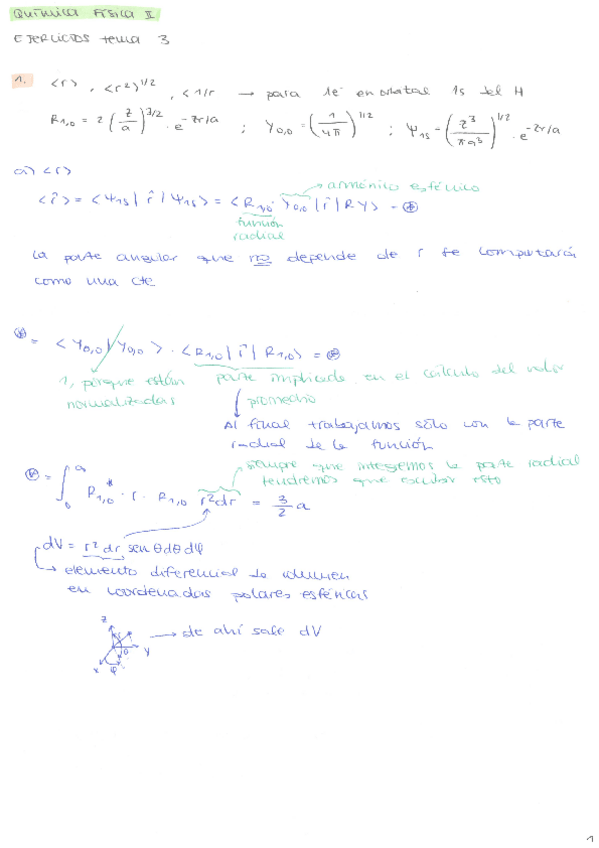 QUÍMICA FÍSICA II
EJERCICIOS tema 3
1. <r> , <r²>^1/2 , <1/r → para 1e⁻ en orbital 1s del H
R1,0 = 2 (Z/a)^3/2 · e^-Zr/a ; Y0,0 = (1/4π)^1/2 ; Ψ1s = (Z³/πa³)^1/2 · e^-Zr/a
a) <r>
→ armónico esférico
<r̂> = <Ψ1s| r̂ |Ψ1s> = <R1,0 Y0,0 |r̂| R Y> = ⊛
función
radial
la parte angular que no depende de r se comportará
como una cte
⊛ = <Y0,0|Y0,0> · <R1,0| r̂ | R1,0> = ⊛
1, porque están parte implicada en el cálculo del valor
normalizadas promedio
Al final trabajamos sólo con la parte
radial de la función
siempre que integremos la parte radial
tendremos que escribir esto
⊛ = ∫ R1,0* · r · R1,0 r²dr = 3/2 a
dV = r² dr senθ dθ dφ
→ elemento diferencial de volumen
en coordenadas polares esféricas
z
→ de ahí sale dV
x θ y
φ
1